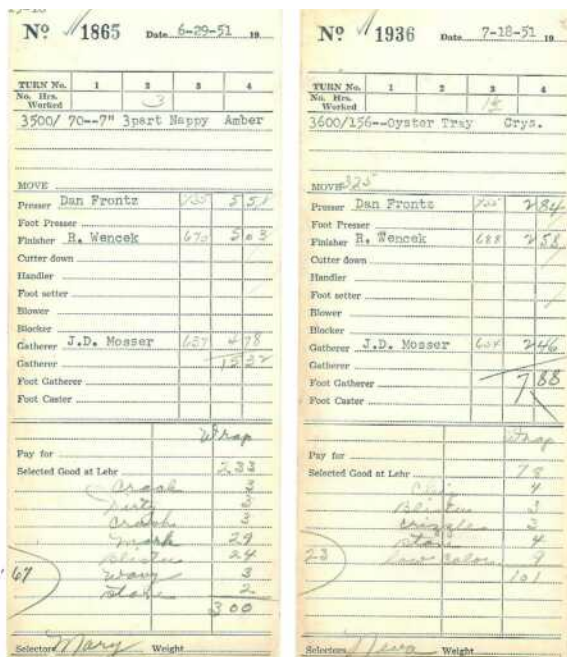 Nº 1865 Date 6-29-51 19
TURN No. 1 2 3 4
No. Hrs. Worked 3
3500/ 70--7" 3part Nappy Amber
MOVE
Presser Dan Frontz 735 5 51
Foot Presser
Finisher R. Wencek 670 5 03
Cutter down
Handler
Foot setter
Blower
Blocker
Gatherer J.D. Mosser 637 4 78
Gatherer 15 32
Foot Gatherer
Foot Caster
Wrap
Pay for
Selected Good at Lehr 233
Crack 3
Dirty 3
Crack 3
Mark 29
Blister 24
67 Wavy 3
Stone 2
300
Selectors Mary Weight
Nº 1936 Date 7-18-51 19
TURN No. 1 2 3 4
No. Hrs. Worked
3600/156--Oyster Tray Crys.
MOVE 325
Presser Dan Frontz 755 2 84
Foot Presser
Finisher R. Wencek 688 2 58
Cutter down
Handler
Foot setter
Blower
Blocker
Gatherer J.D. Mosser 654 2 46
Gatherer
Foot Gatherer 7 88
Foot Caster
Wrap
Pay for
Selected Good at Lehr 78
Chip 4
Blister 3
Crizzle 3
Stone 4
23 low color 9
101
Selectors Neva Weight